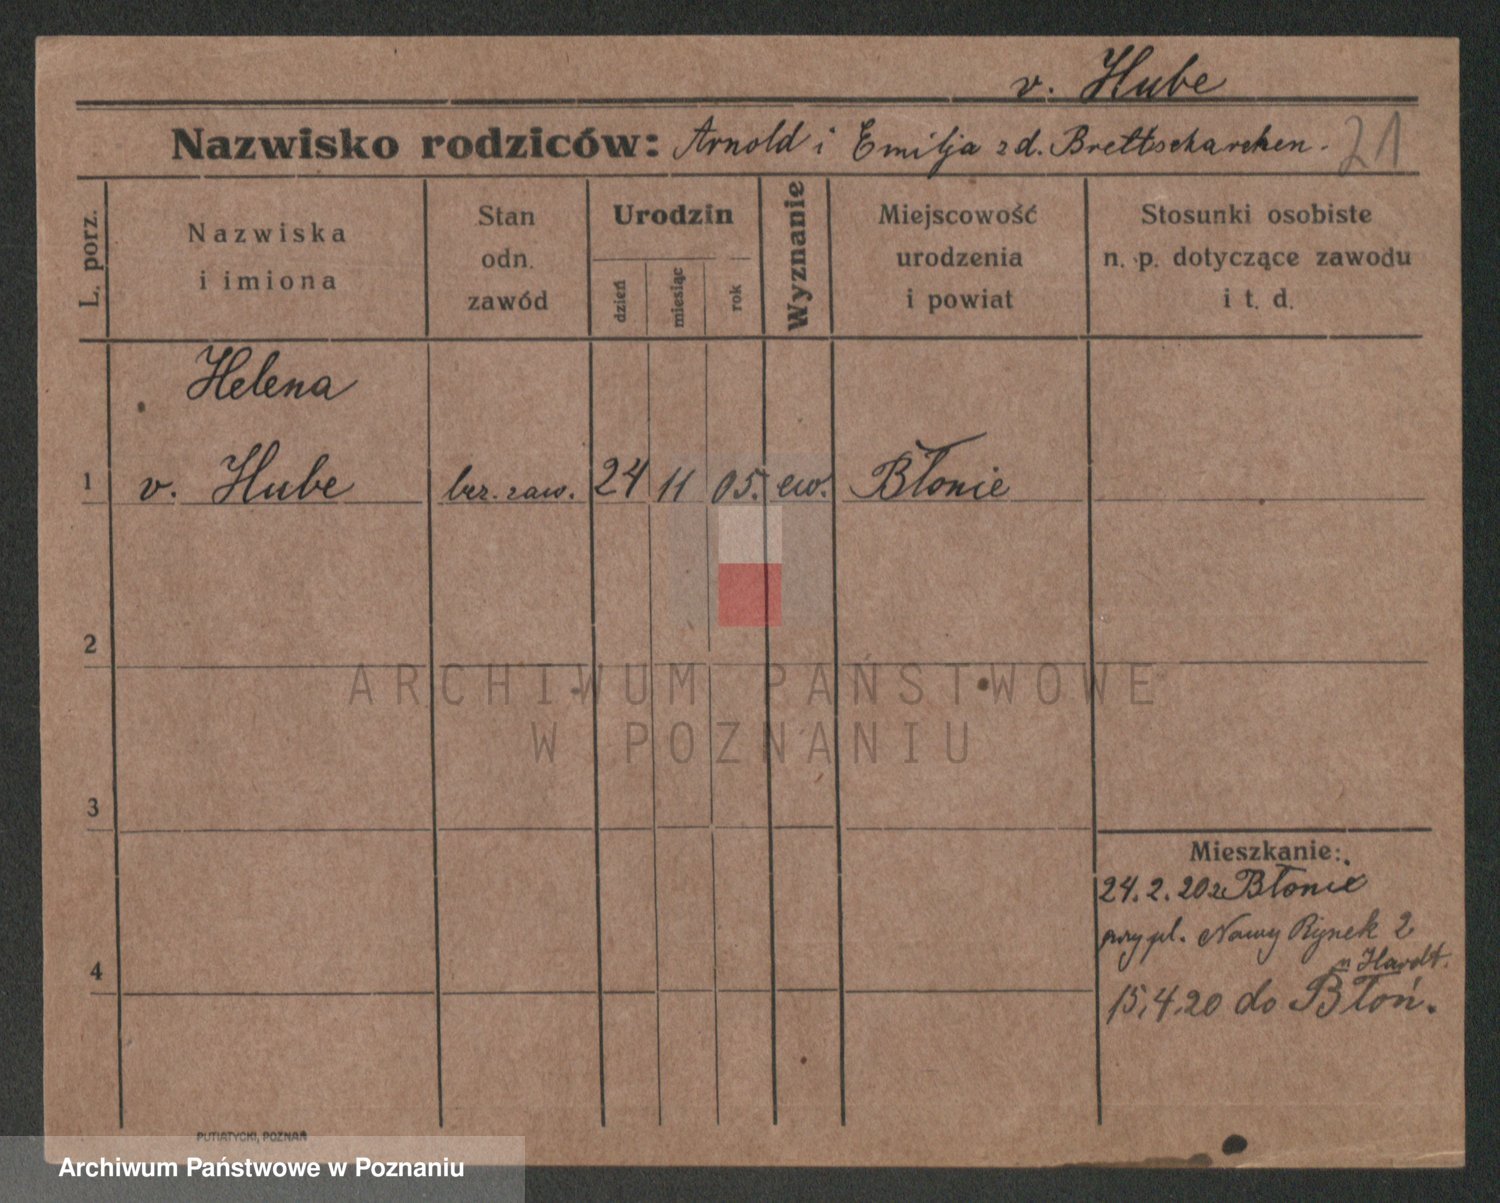 v. Hube
Nazwisko rodziców: Arnold i Emilja zd. Brettscharchen. 21
L. porz.
Nazwiska
i imiona
Stan
odn.
zawód
Urodzin
dzień
miesiąc
rok
Wyznanie
Miejscowość
urodzenia
i powiat
Stosunki osobiste
n. p. dotyczące zawodu
i t. d.
Helena
1 v. Hube bez. zaw. 24 11 05. ew. Błonie
2
3
4
Mieszkanie:
24.2.20 z Błonie
przy pl. Nowy Rynek 2
u Hardt.
15.4.20 do Błoń.
ARCHIWUM PAŃSTWOWE
W POZNANIU
PUTIATYCKI, POZNAŃ
Archiwum Państwowe w Poznaniu